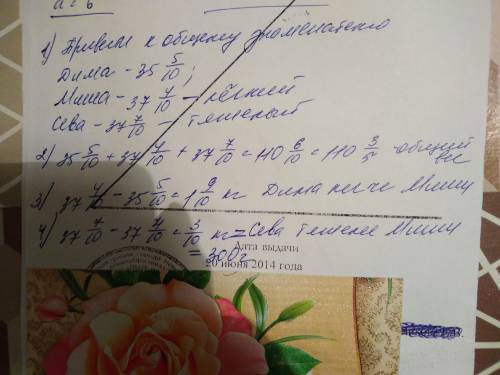 a = b
1) Привели к общему знаменателю
Дима - 35 5/10;
Миша - 37 4/10 - лёгкий
Сева - 37 7/10 - тяжелый
2) 35 5/10 + 37 4/10 + 37 7/10 = 110 6/10 = 110 3/5 общий вес
3) 37 4/10 - 35 5/10 = 1 9/10 кг Дима легче Миши
4) 37 7/10 - 37 4/10 = 3/10 кг = Сева тяжелее Миши
= 300 г
дата выдачи
20 июня 2014 года